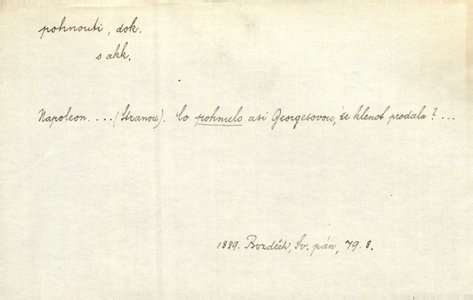 pohnouti, dok.
s akk.
Napoleon. ... (Stranou). Co pohnulo asi Georgesovou, že klenot prodala? ...
1889. Bozděch, Sv. pán, 79. 8.